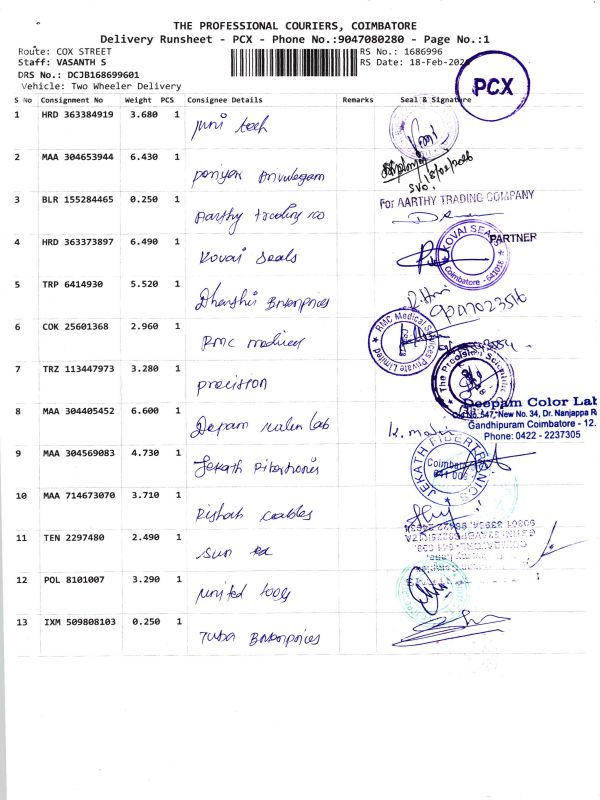 THE PROFESSIONAL COURIERS, COIMBATORE
Delivery Runsheet - PCX - Phone No.:9047080280 - Page No.:1
Route: COX STREET
RS No.: 1686996
Staff: VASANTH S
RS Date: 18-Feb-202
DRS No.: DCJB168699601
Vehicle: Two Wheeler Delivery
PCX
S No Consignment No Weight PCS Consignee Details Remarks Seal & Signature
1 HRD 363384919 3.680 1 tech
2 MAA 304653944 6.430 1
18/02/2026
3 BLR 155284465 0.250 1 Aarthy trading co
For AARTHY TRADING COMPANY
PARTNER
4 HRD 363373897 6.490 1 Kovai Seals
KOVAI SEALS Coimbatore - 641018
5 TRP 6414930 5.520 1 Enterprices
6 COK 25601368 2.960 1 RMC
RMC Medical Services Private Limited
7 TRZ 113447973 3.280 1 precision
The Precision Scientific
8 MAA 304405452 6.600 1 Deepam lab
Deepam Color Lab
Old No. 547, New No. 34, Dr. Nanjappa R
Gandhipuram Coimbatore - 12.
Phone: 0422 - 2237305
9 MAA 304569083 4.730 1 Jekath
JEKATH FIBERTRONICS
10 MAA 714673070 3.710 1 Rishab
11 TEN 2297480 2.490 1 Sun
12 POL 8101007 3.290 1 United tools
13 IXM 509808103 0.250 1 Enterprices